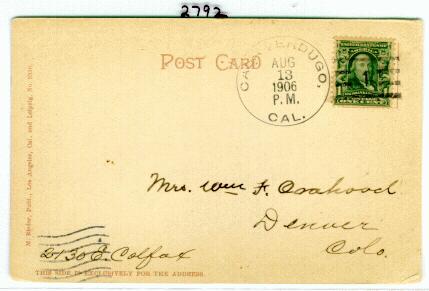 2792
POST CARD
CASA VERDUGO,
AUG
13
1906
P.M.
CAL.
1
ONE CENT
M. Rieder, Publ., Los Angeles, Cal. and Leipzig. No.
Mrs. Wm F.
Denver
Colo.
2130 E. Colfax
THIS SIDE IS EXCLUSIVELY FOR THE ADDRESS.